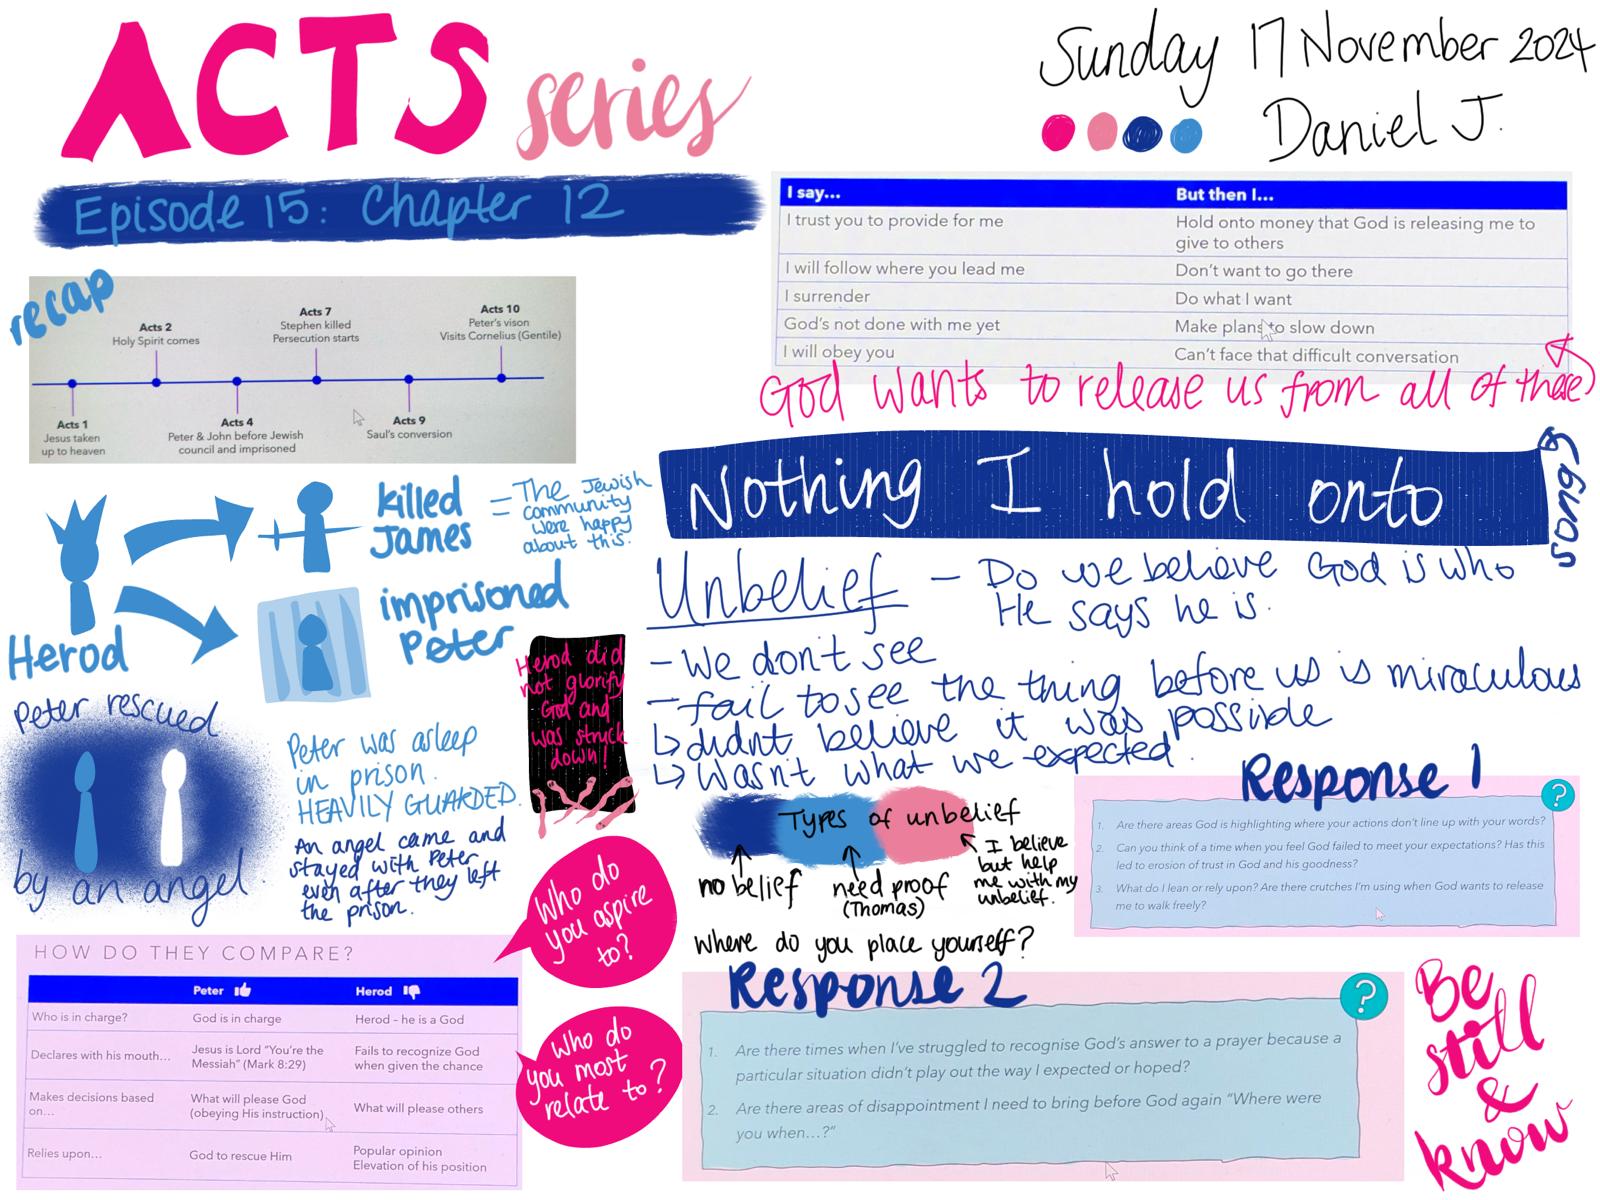 ACTS series
Sunday 17 November 2024
Daniel J.
Episode 15: Chapter 12
recap
Acts 2
Holy Spirit comes
Acts 7
Stephen killed
Persecution starts
Acts 10
Peter's vison
Visits Cornelius (Gentile)
Acts 1
Jesus taken
up to heaven
Acts 4
Peter & John before Jewish
council and imprisoned
Acts 9
Saul's conversion
I say... But then I...
I trust you to provide for me Hold onto money that God is releasing me to
give to others
I will follow where you lead me Don't want to go there
I surrender Do what I want
God's not done with me yet Make plans to slow down
I will obey you Can't face that difficult conversation
God wants to release us from all of these
Nothing I hold onto
song
Herod
killed
James
= The Jewish
community
were happy
about this.
imprisoned
Peter
Herod did
not glorify
God and
was struck
down!
Peter rescued
by an angel
Peter was asleep
in prison.
HEAVILY GUARDED.
An angel came and
stayed with Peter
even after they left
the prison.
Unbelief - Do we believe God is who
He says he is.
- We don't see
- fail to see the thing before us is miraculous
↳ didnt believe it was possible
↳ Wasn't what we expected.
Types of unbelief
no belief
need proof
(Thomas)
I believe
but help
me with my
unbelief.
Where do you place yourself?
Response 1
?
1. Are there areas God is highlighting where your actions don't line up with your words?
2. Can you think of a time when you feel God failed to meet your expectations? Has this
led to erosion of trust in God and his goodness?
3. What do I lean or rely upon? Are there crutches I'm using when God wants to release
me to walk freely?
Who do
you aspire
to?
Who do
you most
relate to?
HOW DO THEY COMPARE?
Peter Herod
Who is in charge? God is in charge Herod – he is a God
Declares with his mouth... Jesus is Lord "You're the
Messiah" (Mark 8:29) Fails to recognize God
when given the chance
Makes decisions based
on... What will please God
(obeying His instruction) What will please others
Relies upon... God to rescue Him Popular opinion
Elevation of his position
Response 2
?
1. Are there times when I've struggled to recognise God's answer to a prayer because a
particular situation didn't play out the way I expected or hoped?
2. Are there areas of disappointment I need to bring before God again "Where were
you when...?"
Be
still
&
know